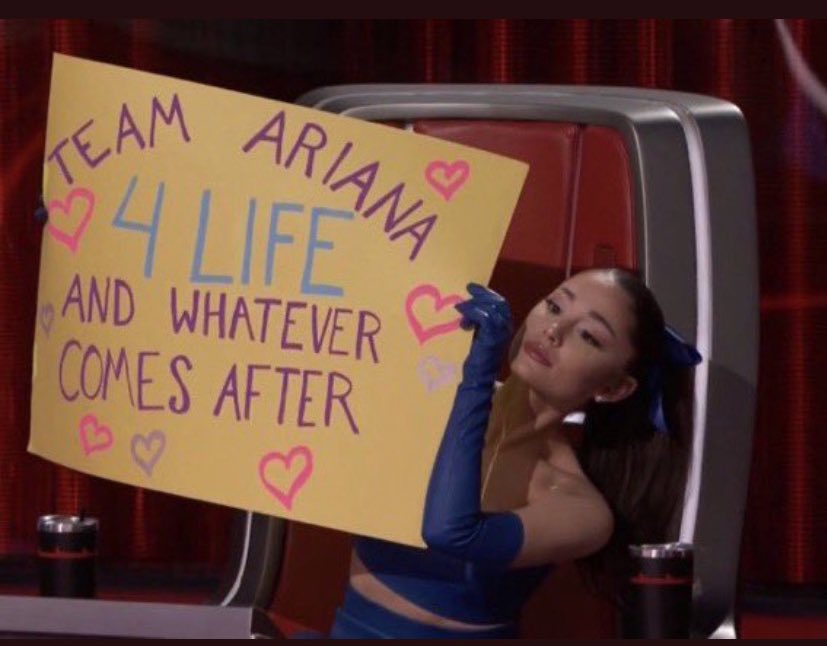 TEAM ARIANA
4 LIFE
AND WHATEVER
COMES AFTER